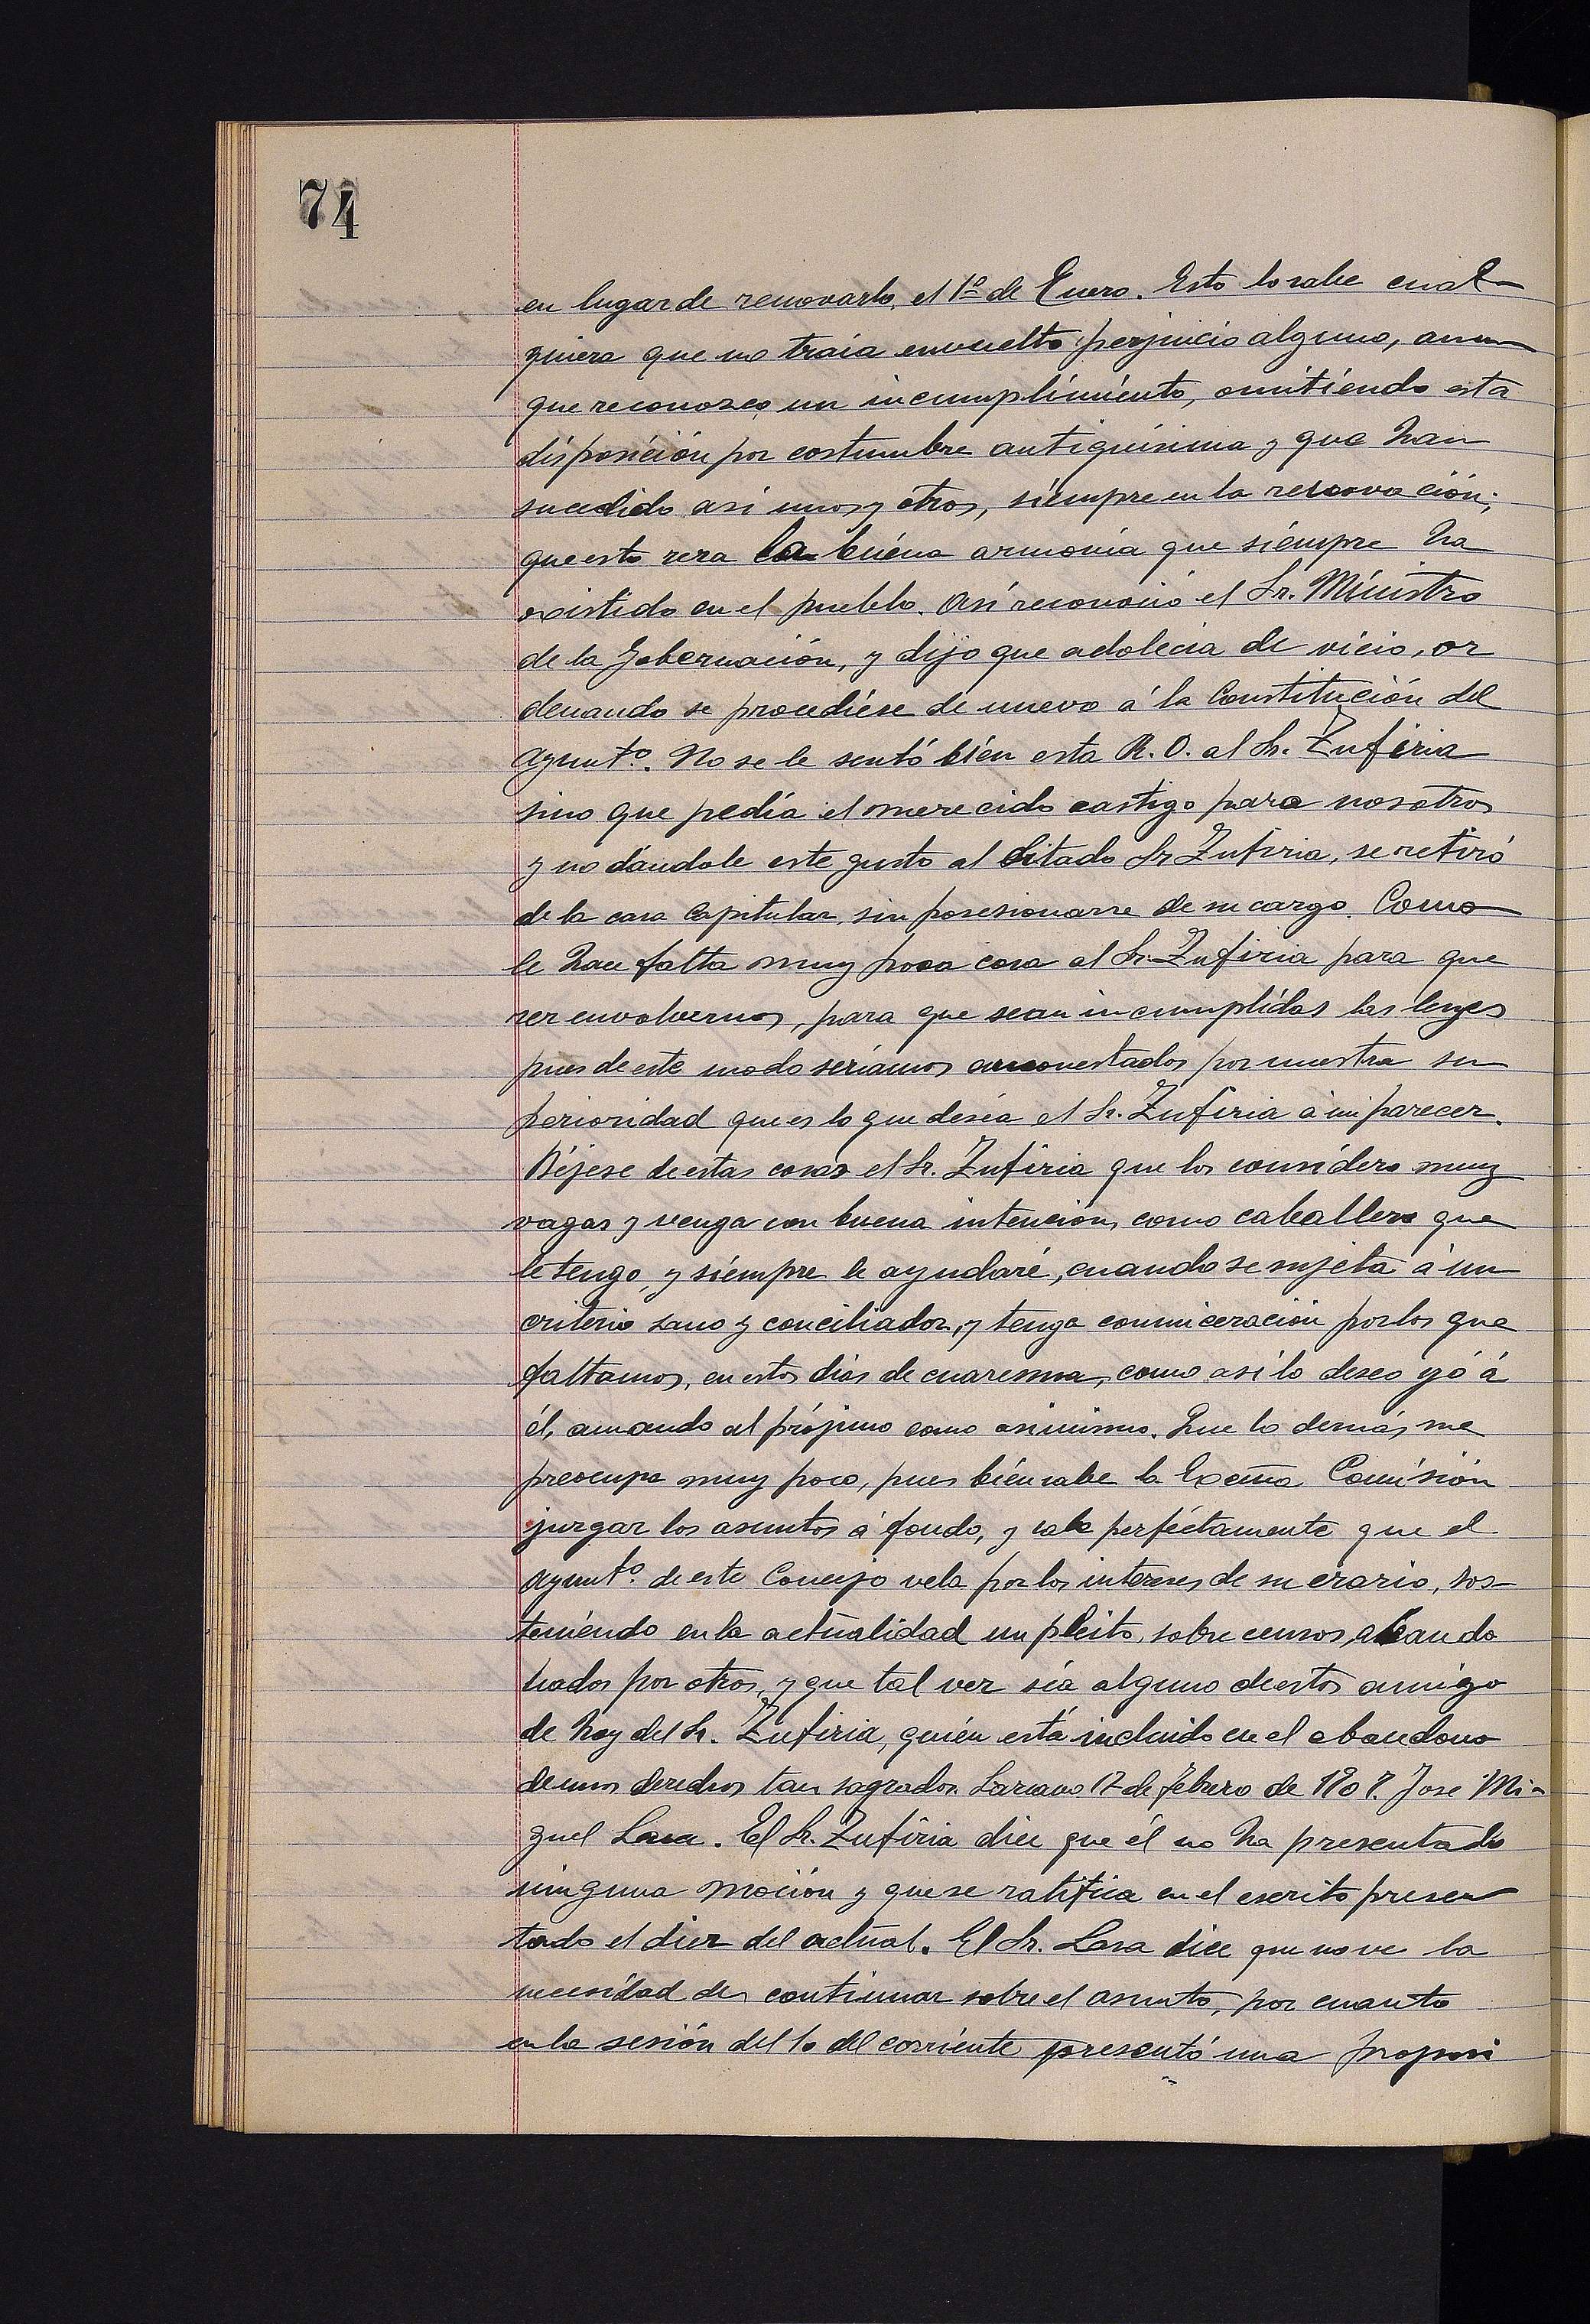 74
en lugar de renovarlo, el 1º de Enero. Esto lo sabe cual-
quiera que no traia envuelto perjuicio alguno, aun
que reconozco, un incumplimiento, omitiendo esta
disposición por costumbre antiquisima y que han
sucedido asi unos y otros, siempre en la renovación;
que esto rera la buena armonia que siempre ha
existido en el pueblo. Asi reconoció el Sr. Ministro
de la Gobernación, y dijo que adolecia de vicio, or
denando se procediese de nuevo á la Constitución del
Ayuntº. No se le sentó bién esta R. O. al Sr. Zufiria
sino que pedía el merecido castigo para nosotros
y no dándole este gusto al Citado Sr Zufiria, se retiró
de la casa Capitular, sin posesionarse de su cargo. Como
le hace falta muy poca cosa al Sr. Zufiria para que
rer envolvernos, para que sean incumplidas las leyes
pues de este modo seriamos amonestados por nuestra su
perioridad que es lo que deséa el Sr. Zufiria á mi parecer.
Déjese de estas cosas el Sr. Zufiria que los considero muy
vagas y venga con buena intención, como caballero que
le tengo, y siémpre le ayudaré, cuando se sujeta á un
criterio sano y conciliador, y tenga conmiceración por los que
faltamos, en estos dias de cuaresma, como asi lo deseo yó á
él, amando al prójimo como asimismo. Que lo demás me
preocupa muy poco, pues bién sabe la Excma Comisión
jurgar los asuntos á fondo, y sabe perféctamente que el
Ayuntº. de este Concejo vela por los intereses de su erario, sos-
teniéndo en la actualidad un pleito, sobre censos, abando
nados por otros, y que tal vez séa alguno de estos amigo
de hoy del Sr. Zufiria, quién está incluido en el abandono
de unos derechos tan sagrados. Larcano 17 de febrero de 1907. Jose Mi-
guel Lasa. El Sr. Zufiria dice que él no ha presentado
ninguna moción y que se ratifica en el escrito presen
tado el diez del actual. El Sr. Lasa dice que no ve la
necesidad de continuar sobre el asunto, por cuanto
en la sesión del 10 del corriente presentó una proposi